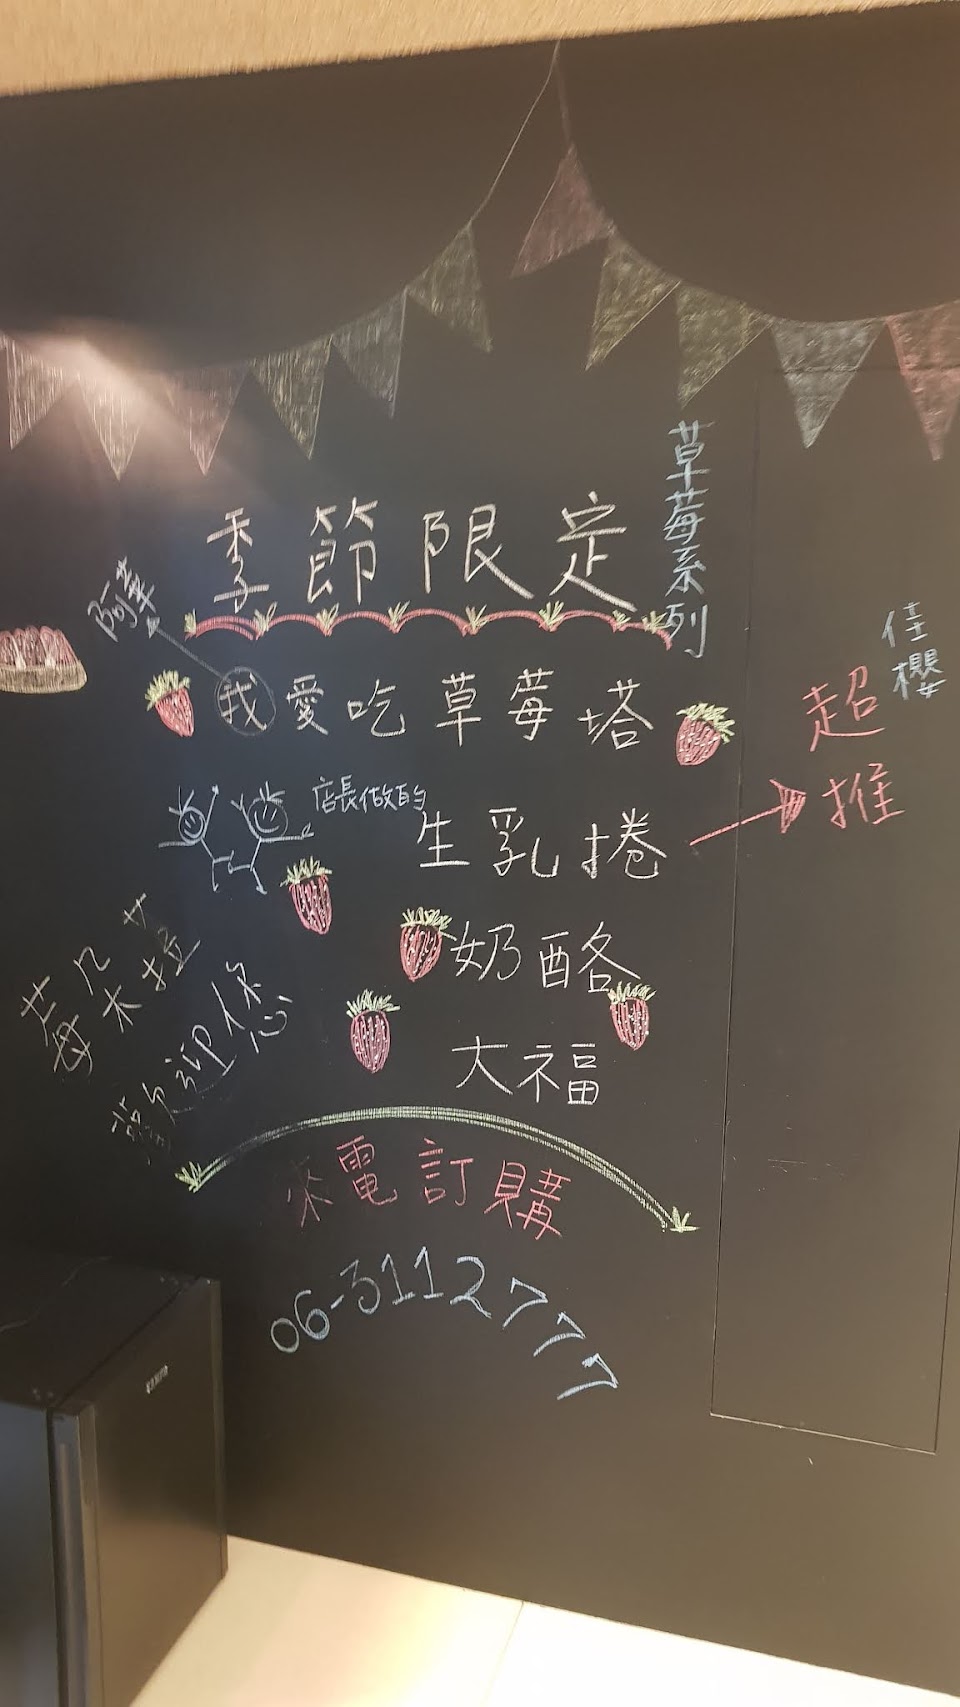 季節限定
草莓系列
阿華
我愛吃草莓塔
佳櫻
超推
店長做的
生乳捲
奶酪
大福
莓朵拉
歡迎您
來電訂購
06-3112777